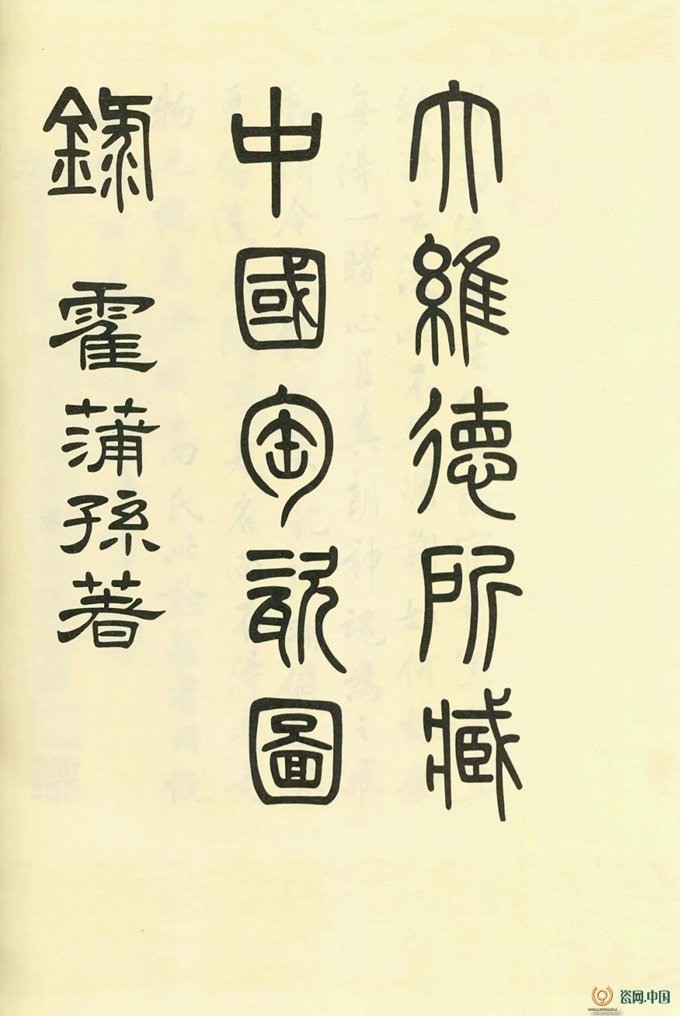 大維德所臧
中國匋瓷圖
錄 霍蒲孫著
瓷网.中国